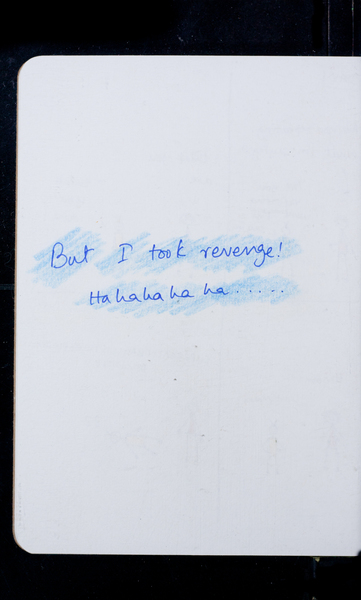 But I took revenge!
Hahahaha ha.....